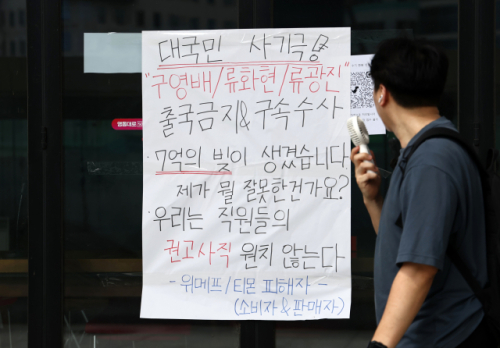 대국민 사기극!
"구영배/류화현/류광진"
출국금지&구속수사
· 7억의 빚이 생겼습니다
제가 뭘 잘못한건가요?
· 우리는 직원들의
권고사직 원치 않는다
- 위메프/티몬 피해자 -
(소비자&판매자)